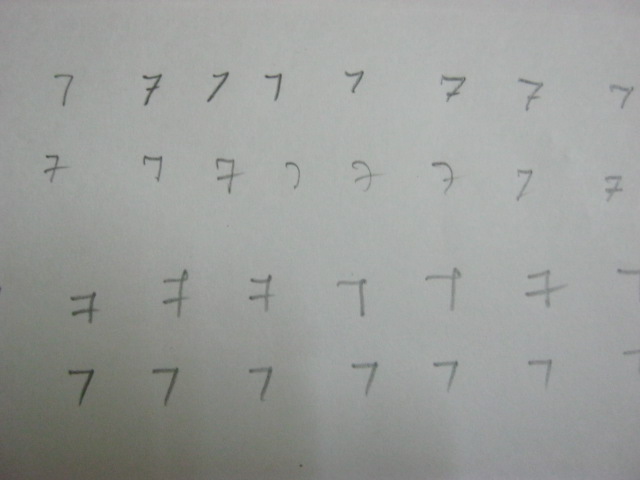 7 7 7 7 7 7 7 7
7 7 7 7 7 7 7 7
7 7 7 7 7 7
7 7 7 7 7 7